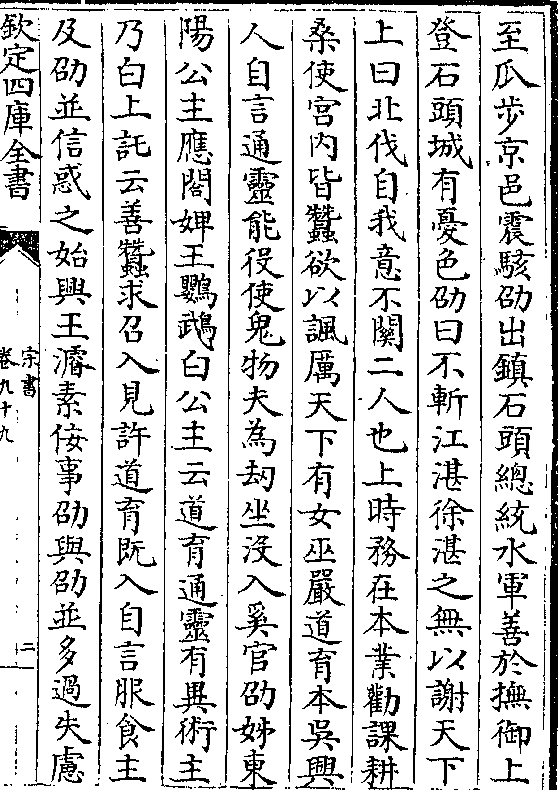 至瓜步京邑震駭劭出鎮石頭緫統水軍善於撫御上
登石頭城有憂色劭曰不斬江湛徐湛之無以謝天下
上曰北伐自我意不關二人也上時務在本業勸課耕
桑使宫内皆蠶欲以諷厲天下有女巫嚴道育本吳興
人自言通靈能役使鬼物夫為刼坐沒入奚官劭姊東
陽公主應閤婢王鸚鵡白公主云道育通靈有異術主
乃白上託云善蠶求召入見許道育既入自言服食主
及劭並信惑之始興王濬素佞事劭與劭並多過失慮
欽定四庫全書
宋書
卷九十九
二